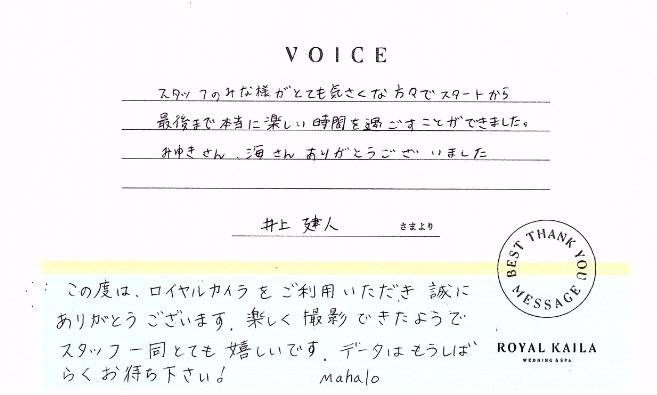 VOICE
スタッフのみな様がとても気さくな方々でスタートから
最後まで本当に楽しい時間を過ごすことができました。
みゆきさん、海さん ありがとうございました
井上 建人 さまより
BEST THANK YOU MESSAGE
この度は、ロイヤルカイラをご利用いただき誠に
ありがとうございます。楽しく撮影できたようで
スタッフ一同とても嬉しいです。データはもうしば
らくお待ち下さい!
mahalo
ROYAL KAILA
WEDDING & SPA